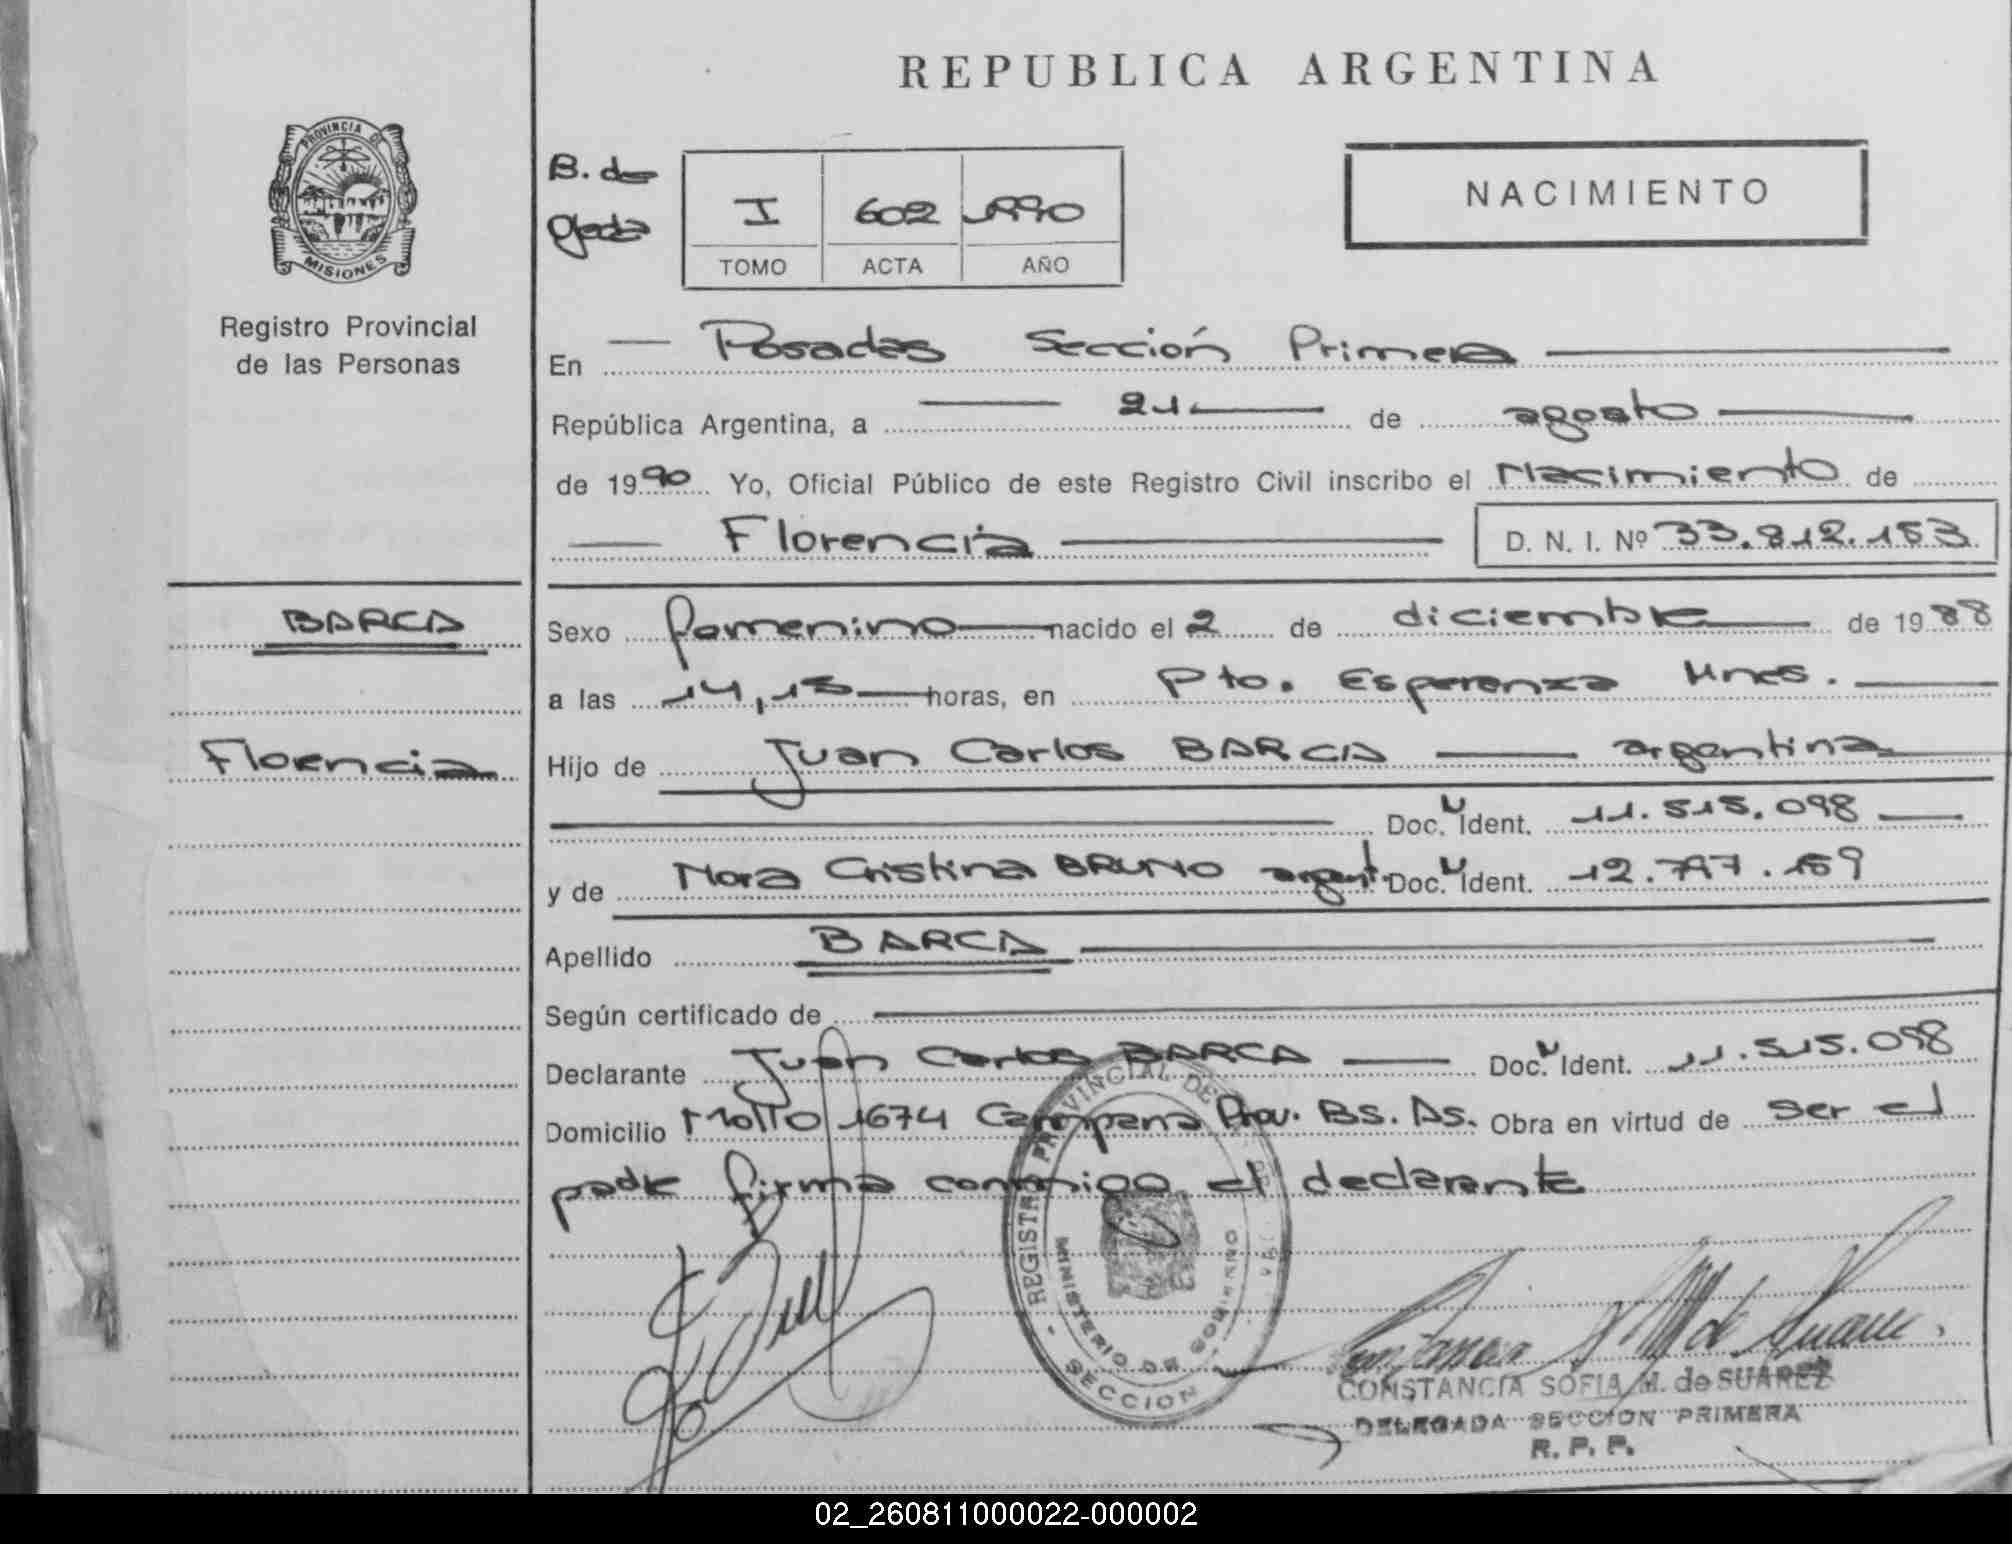 REPUBLICA ARGENTINA
PROVINCIA DE
MISIONES
Registro Provincial
de las Personas
B. de
I 602 1990
TOMO ACTA AÑO
NACIMIENTO
En Posadas Sección Primera
República Argentina, a 21 de agosto
de 1990 Yo, Oficial Público de este Registro Civil inscribo el Nacimiento de
Florencia D. N. I. Nº 33.812.153
BARCA
Florencia
Sexo femenino nacido el 2 de diciembre de 1988
a las 14,15 horas, en Pto. Esperanza Mnes.
Hijo de Juan Carlos BARCA argentina
Doc. Ident. 11.515.098
y de Nora Cristina BRUNO argent. Doc. Ident. 12.797.159
Apellido BARCA
Según certificado de
Declarante Juan Carlos BARCA Doc. Ident. 11.515.098
Domicilio 1674 Campana Prov. Bs. As. Obra en virtud de ser el
padre firma conmigo el declarante
REGISTRO PROVINCIAL DE
MINISTERIO DE GOBIERNO
SECCION 1
CONSTANCIA SOFIA M. de SUAREZ
DELEGADA SECCION PRIMERA
R. P. P.
02_260811000022-000002